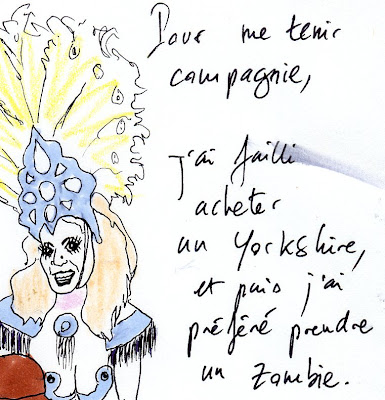 Pour me tenir
compagnie,
j'ai failli
acheter
un Yorkshire,
et puis j'ai
préféré prendre
un Zombie.